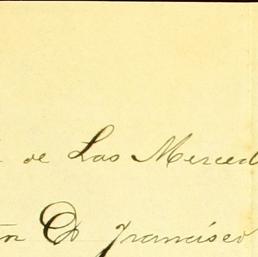 de Las Merced
Dn Francisco